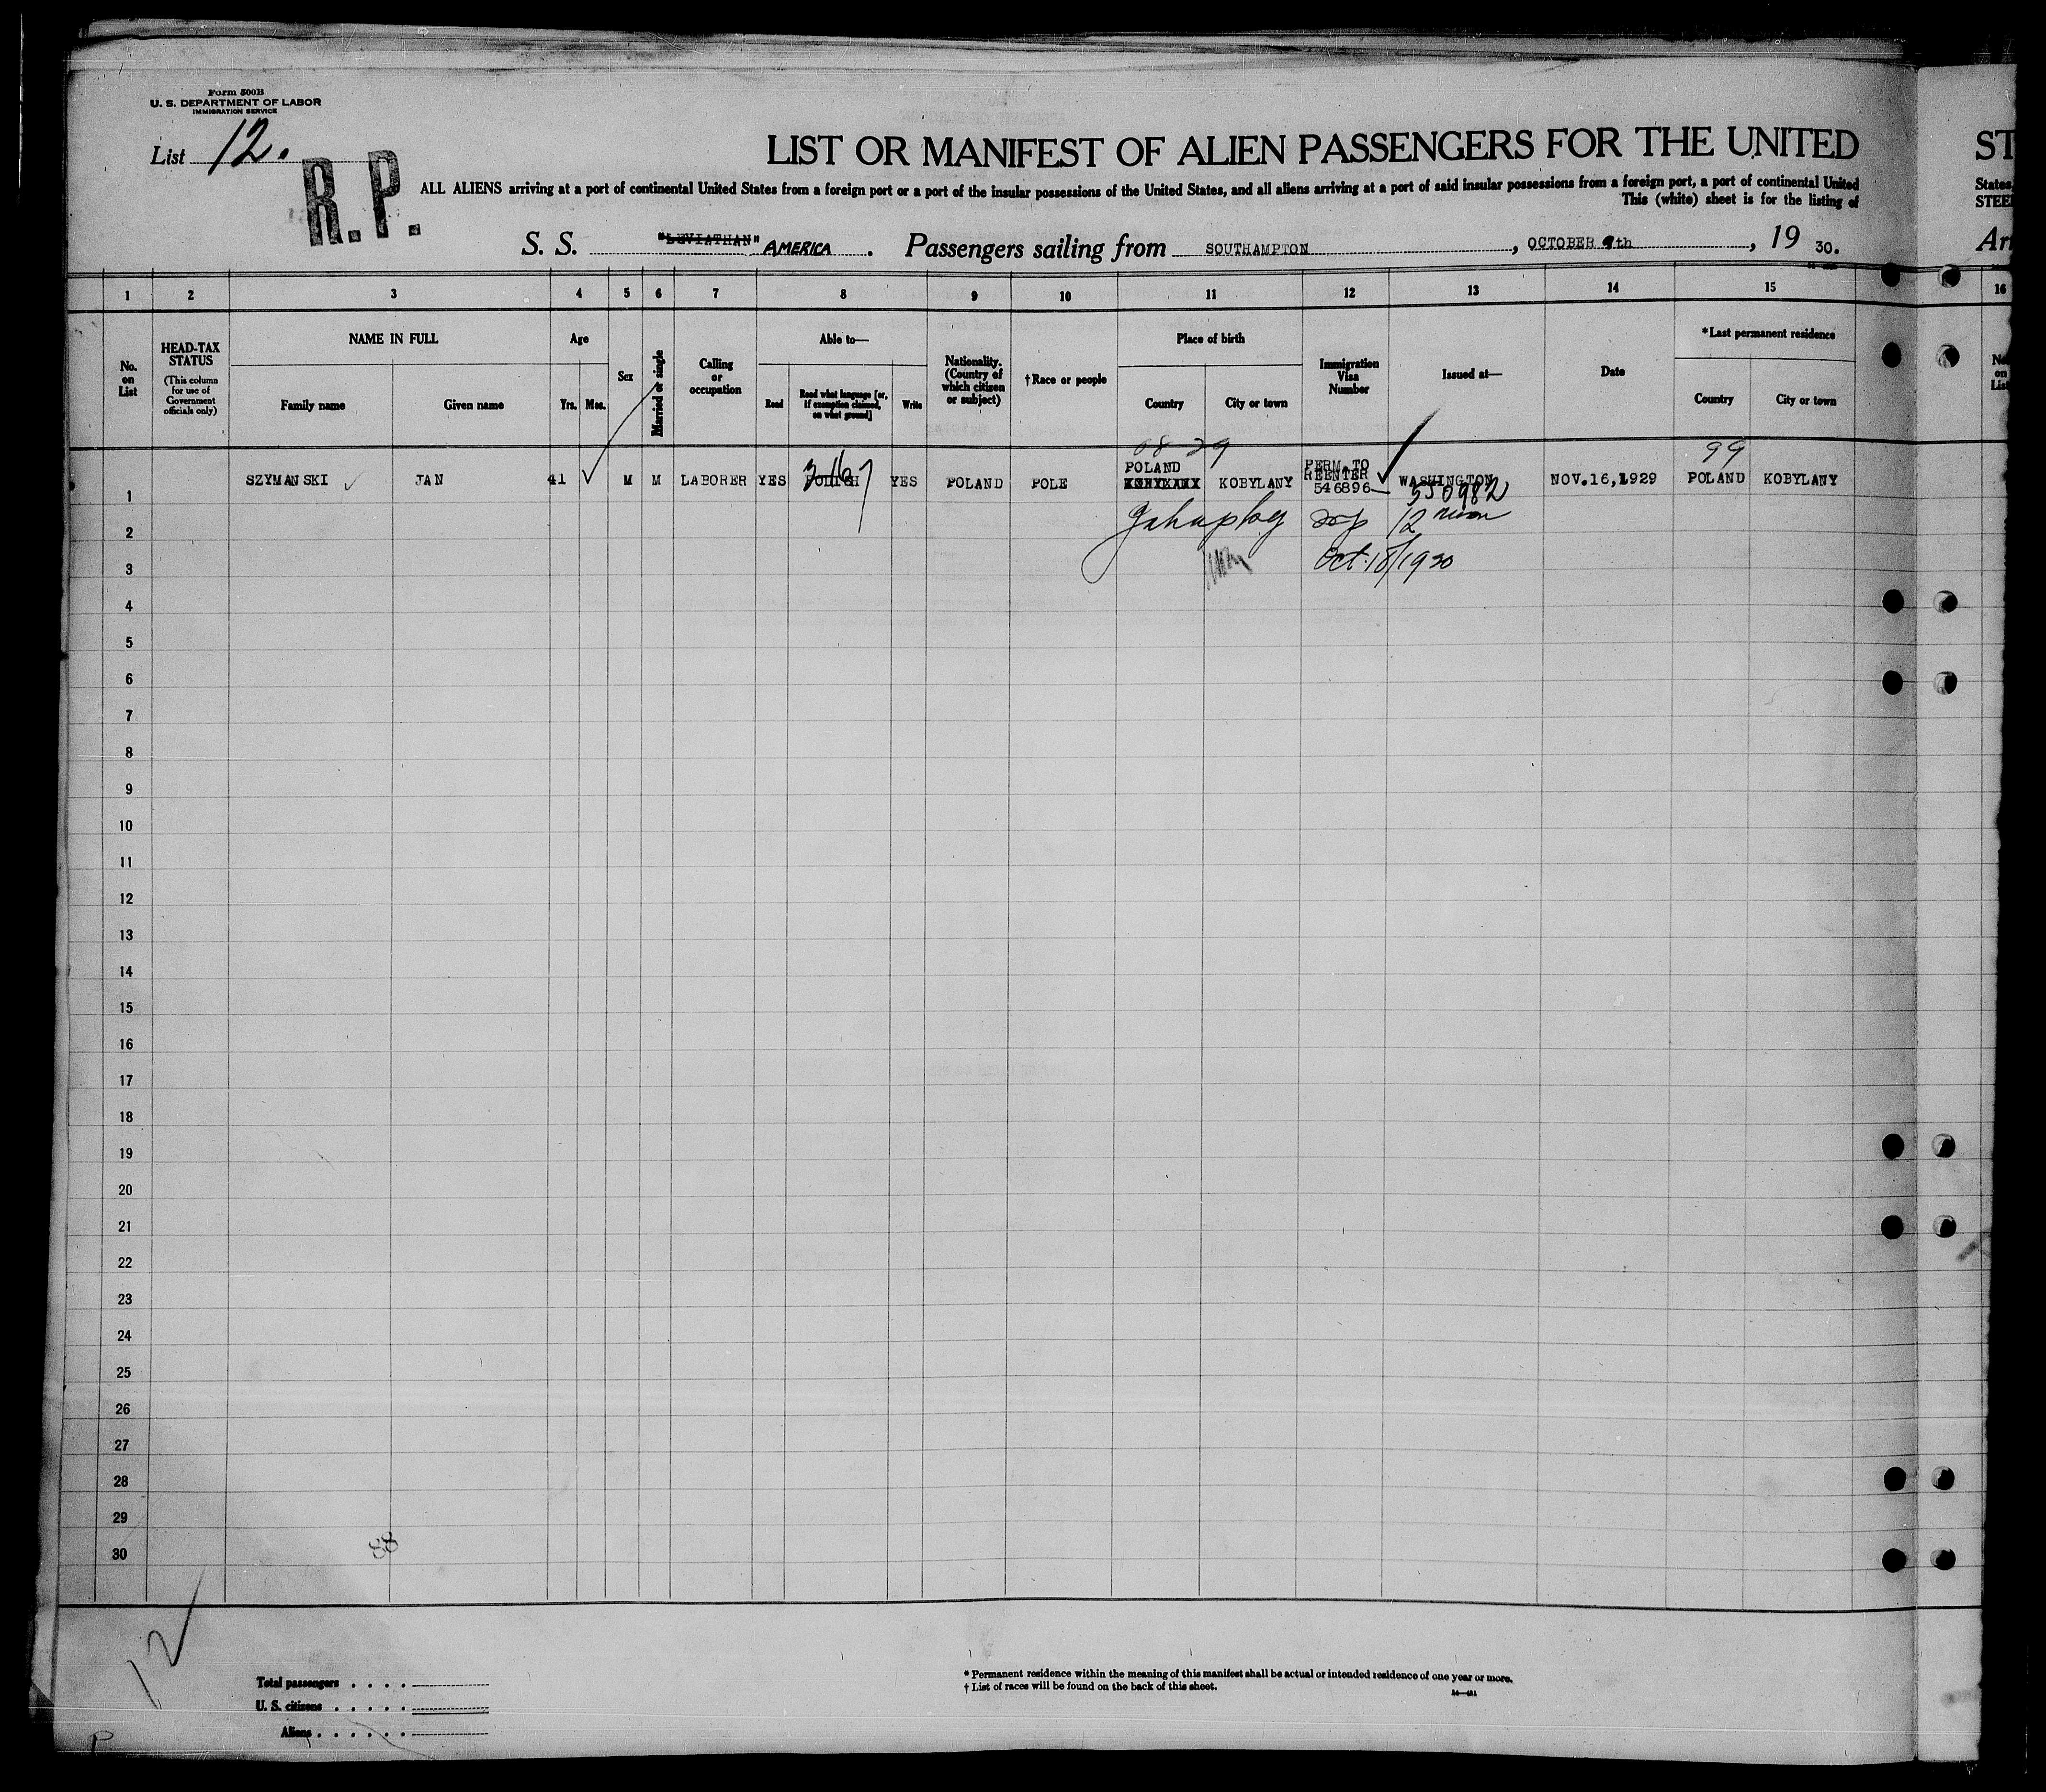 Form 500B
U. S. DEPARTMENT OF LABOR
IMMIGRATION SERVICE
List 12.
R. P.
LIST OR MANIFEST OF ALIEN PASSENGERS FOR THE UNITED
ST
ALL ALIENS arriving at a port of continental United States from a foreign port or a port of the insular possessions of the United States, and all aliens arriving at a port of said insular possessions from a foreign port, a port of continental United
States,
This (white) sheet is for the listing of
STEE
S. S. "LEVIATHAN" AMERICA. Passengers sailing from SOUTHAMPTON, OCTOBER 9th, 1930.
Arr
1 2 3 4 5 6 7 8 9 10 11 12 13 14 15 16
No. on List
HEAD-TAX STATUS
(This column for use of Government officials only)
NAME IN FULL
Family name
Given name
Age
Yrs. Mos.
Sex
Married or single
Calling or occupation
Able to—
Read
Read what language [or, if exemption claimed, on what ground]
Write
Nationality. (Country of which citizen or subject)
†Race or people
Place of birth
Country
City or town
Immigration Visa Number
Issued at—
Date
*Last permanent residence
Country
City or town
No. on List
08 29
99
1 SZYMANSKI JAN 41 M M LABORER YES POLISH YES POLAND POLE POLAND KOBYLANY PERM.TO REENTER 546896 WASHINGTON NOV.16,1929 POLAND KOBYLANY
550982
2
12 noon
3
Oct. 18/1930
4
5
6
7
8
9
10
11
12
13
14
15
16
17
18
19
20
21
22
23
24
25
26
27
28
29
30
88
12
Total passengers . . . .
U. S. citizens . . . . .
Aliens . . . . . .
* Permanent residence within the meaning of this manifest shall be actual or intended residence of one year or more.
† List of races will be found on the back of this sheet.
P